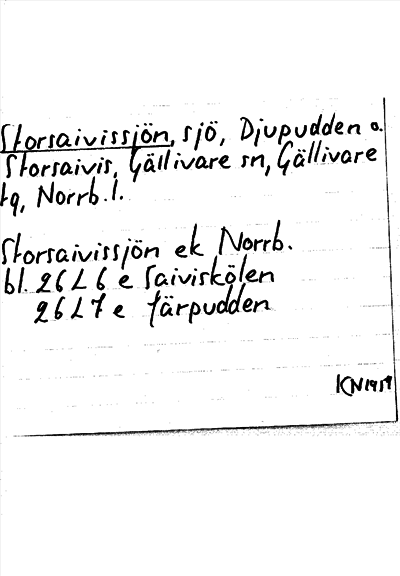 Storsaivissjön, sjö, Djupudden o.
Storsaivis, Gällivare sn, Gällivare
tg, Norrb. l.
Storsaivissjön ek Norrb.
bl. 26 L 6 e Saiviskölen
26 L 7 e Tärpudden
KN 1959